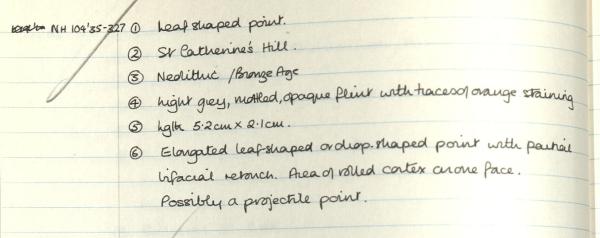 NH 104'35-327 ① Leaf shaped point.
② St Catherine's Hill.
③ Neolithic / Bronze Age
④ Light grey, mottled, opaque flint with traces of orange staining
⑤ lgth 5.2cm x 2.1cm.
⑥ Elongated leaf-shaped or drop-shaped point with partial
bifacial retouch. Area of rolled cortex on one face.
Possibly a projectile point.